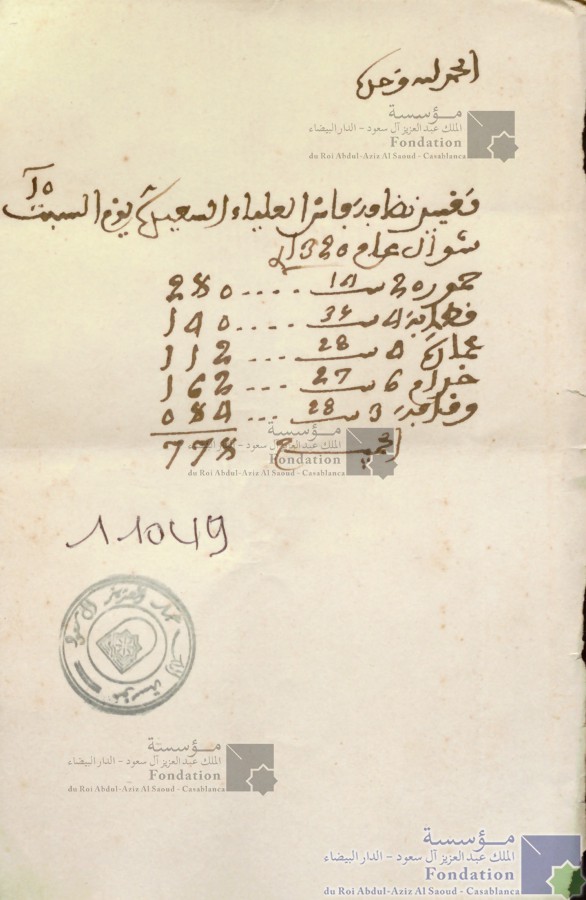 الحمد لله وحده
مؤسسة
الملك عبد العزيز آل سعود - الدار البيضاء
Fondation
du Roi Abdul-Aziz Al Saoud - Casablanca
العلياء السعيدة يوم السبت 15
شوال عام 1320
20 ست 14 .... 280
4 ست 36 .... 140
4 ست 28 ... 112
خدام 6 ست 27 ... 162
3 ست 28 ... 084
الجميع 778
مؤسسة
الملك عبد العزيز آل سعود - الدار البيضاء
Fondation
du Roi Abdul-Aziz Al Saoud - Casablanca
11049
مؤسسة
الملك عبد العزيز آل سعود - الدار البيضاء
Fondation
du Roi Abdul-Aziz Al Saoud - Casablanca
مؤسسة
الملك عبد العزيز آل سعود - الدار البيضاء
Fondation
du Roi Abdul-Aziz Al Saoud - Casablanca